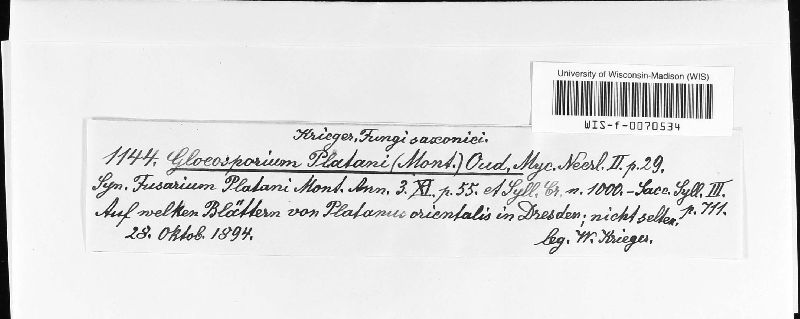 University of Wisconsin-Madison (WIS)
WIS-f-0070534
Krieger, Fungi saxonici.
1144. Gloeosporium Platani (Mont.) Oud, Myc. Neerl. II. p. 29.
Syn. Fusarium Platani Mont. Ann. 3. XI. p. 55. et Syll. Cr. n. 1000. - Sacc. Syll. III. p. 711.
Auf welken Blättern von Platanus orientalis in Dresden; nicht selten.
28. Oktob. 1894. leg. W. Krieger.